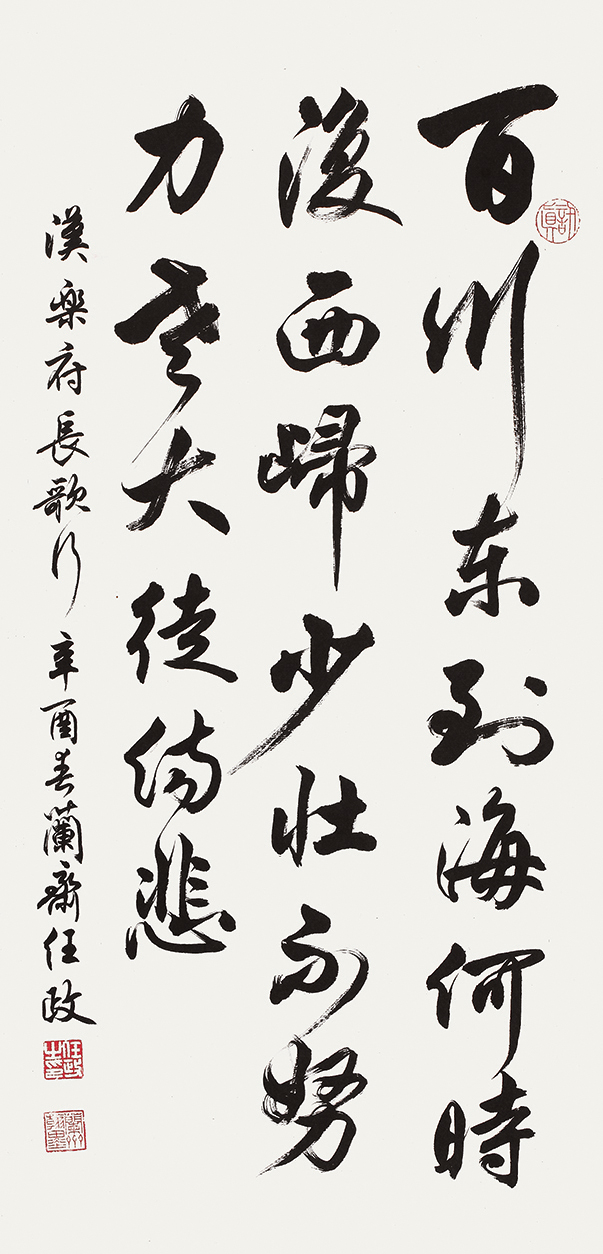 百川东到海何時
復西歸少壯不努
力老大徒傷悲
漢樂府長歌行 辛酉春蘭齋任政